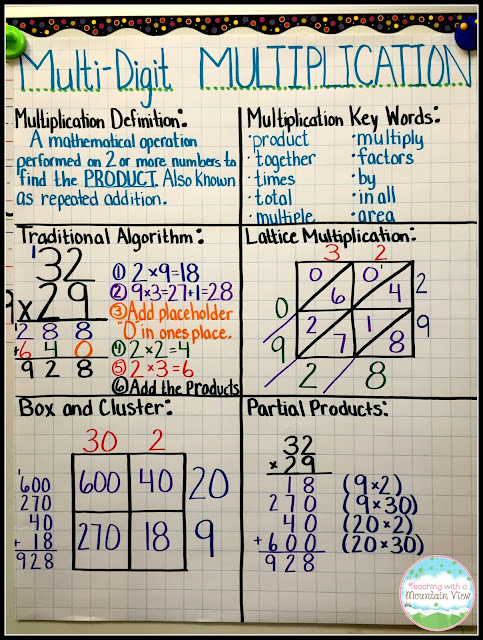 Multi-Digit MULTIPLICATION
Multiplication Definition:
A mathematical operation
performed on 2 or more numbers to
find the PRODUCT. Also Known
as repeated addition.
Multiplication Key Words:
·product ·multiply
·together ·factors
·times ·by
·total ·in all
·multiple ·area
Traditional Algorithm:
1
32
×29
1
288
+640
928
① 2×9=18
② 9×3=27+1=28
③ Add placeholder
"0" in ones place.
④ 2×2=4
⑤ 2×3=6
⑥ Add the Products
Lattice Multiplication:
3 2
0 6 0 1 4 2
0
2 7 1 8 9
9
2 8
Box and Cluster:
30 2
600 40 20
270 18 9
1
600
270
40
+ 18
928
Partial Products:
32
×29
18 (9×2)
270 (9×30)
40 (20×2)
+600 (20×30)
928
Teaching with a
Mountain View